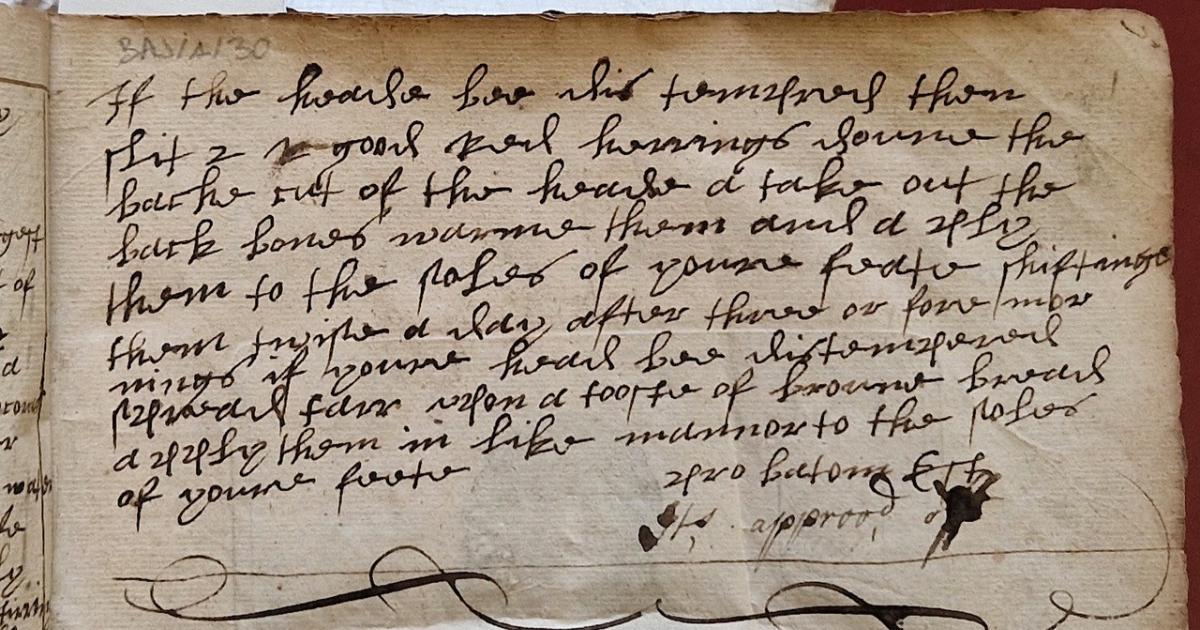 BAJ/A/130
If the heade bee dis tempred then
slit 2 good Red herrings doune the
backe cut of the heade a take out the
back bones warme them and a ply
them to the soles of youre feate shiftinge
them twise a day after three or fore mor
nings if youre head bee distempered
spread tarr upon a tooste of broune bread
apply them in like mannor to the soles
of youre feete
pro batom Est
Its approod